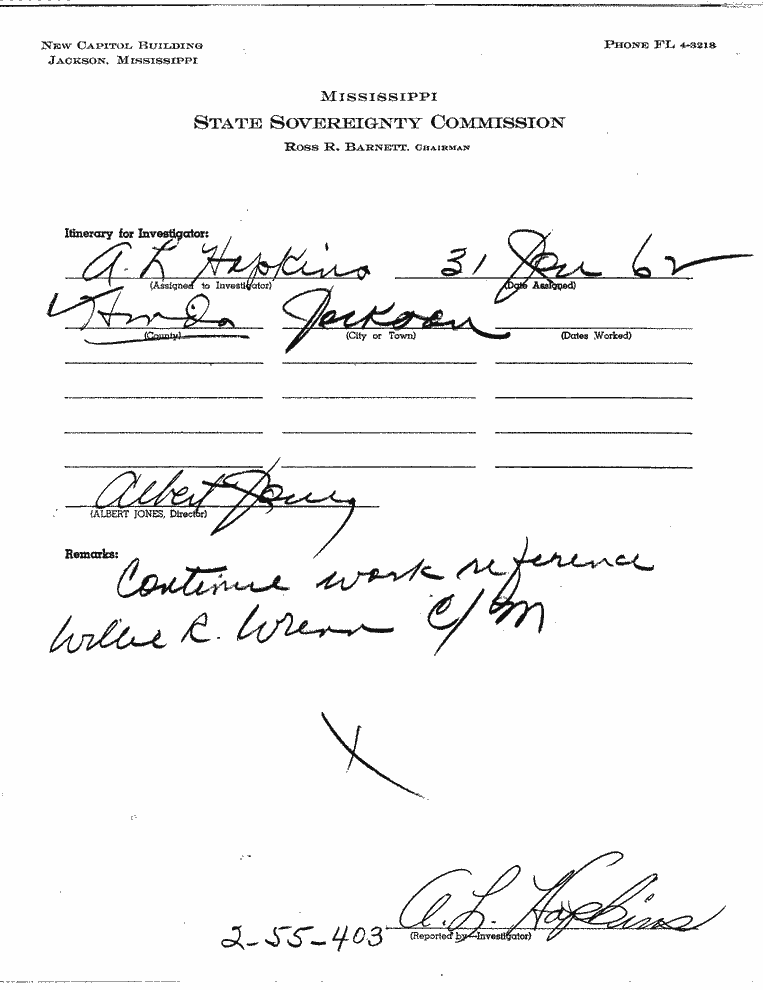 NEW CAPITOL BUILDING
JACKSON, MISSISSIPPI
PHONE FL 4-3218
MISSISSIPPI
STATE SOVEREIGNTY COMMISSION
ROSS R. BARNETT, CHAIRMAN
Itinerary for Investigator:
A. L Hopkins 31 Jan 62
(Assigned to Investigator) (Date Assigned)
Hinds Jackson
(County) (City or Town) (Dates Worked)
Albert Jones
(ALBERT JONES, Director)
Remarks:
Continue work reference
Willie R. Wrenn C/M
A. L. Hopkins
2-55-403 (Reported by—Investigator)